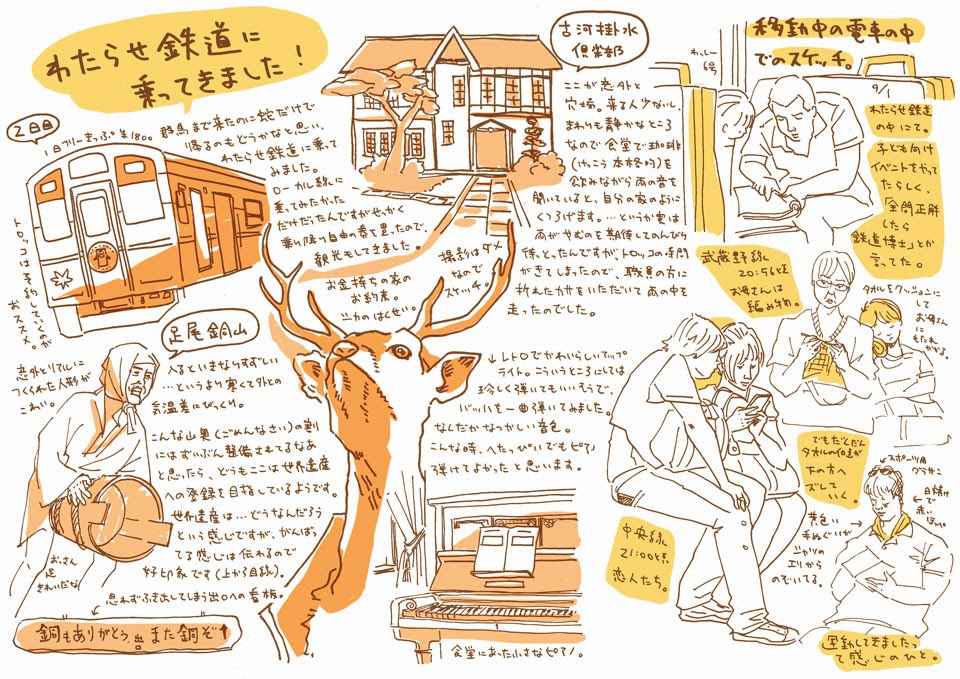 わたらせ鉄道に
乗ってきました!
2日目
1日フリーきっぷ¥1800。
群馬まで来たのに蛇だけで
帰るのもどうかなと思い、
わたらせ鉄道に乗って
みました。
ローカル線に
乗ってみたかった
だけだったんですがせっかく
乗り降り自由の券を買ったので、
観光もしてきました。
トロッコは予約していくのが
おススメ。
お金持ちの家の
お約束。
シカのはくせい。
撮影はダメ
なので
スケッチ。
古河掛水
倶楽部
ここが意外と
穴場。来る人少ないし、
まわりも静かなところ
なので食堂で珈琲
(けっこう本格的)を
飲みながら雨の音を
聞いていると、自分の家のように
くつろげます。…というか実は
雨がやむのを期待してのんびり
待っとったんですが、トロッコの時間
がきてしまったので、職員の方に
折れたカサをいただいて雨の中を
走ったのでした。
↓レトロでかわいらしいアップ
ライト。こういうところにしては
珍しく弾いてもいいそうで、
バッハを一曲弾いてみました。
なんだかなつかしい音色。
こんな時、へたっぴいでもピアノ
弾けてよかったと思います。
食堂にあった小さなピアノ。
足尾銅山
入るといきなりすずしい
…というより寒くて外との
気温差にびっくり。
意外とリアルに
つくられた人形が
こわい。
こんな山奥(ごめんなさい)の割
にはずいぶん整備されてるなあ
と思ったら、どうもここは世界遺産
への登録を目指しているようです。
世界遺産は…どうなんだろう
という感じですが、がんばっ
てる感じは伝わるので
好印象です(上から目線)。
おっさん
足
きれいだな
思わずふき出してしまう出口への看板。
銅もありがとう。出 また銅ぞ↑
移動中の電車の中
でのスケッチ。
わっしー
6号
9/1
わたらせ鉄道
の中にて。
子ども向け
イベントをやって
たらしく、
「全問正解
したら
鉄道博士」とか
言ってた。
武蔵野線
20:56ごろ
お母さんは
編み物。
タオルをクッションに
して
お母さん
にも
たれ
かかる。
でもだんだん
タオルの位置が
下の方へ
ズレて
いく。
中央線
21:00ごろ
恋人たち。
スポーツ用
グラサン
日焼け
で
赤い
っぽい
黄色い
手ぬぐいが
シャツの
エリから
のぞいてる。
運動してきましたっ
て感じのひと。